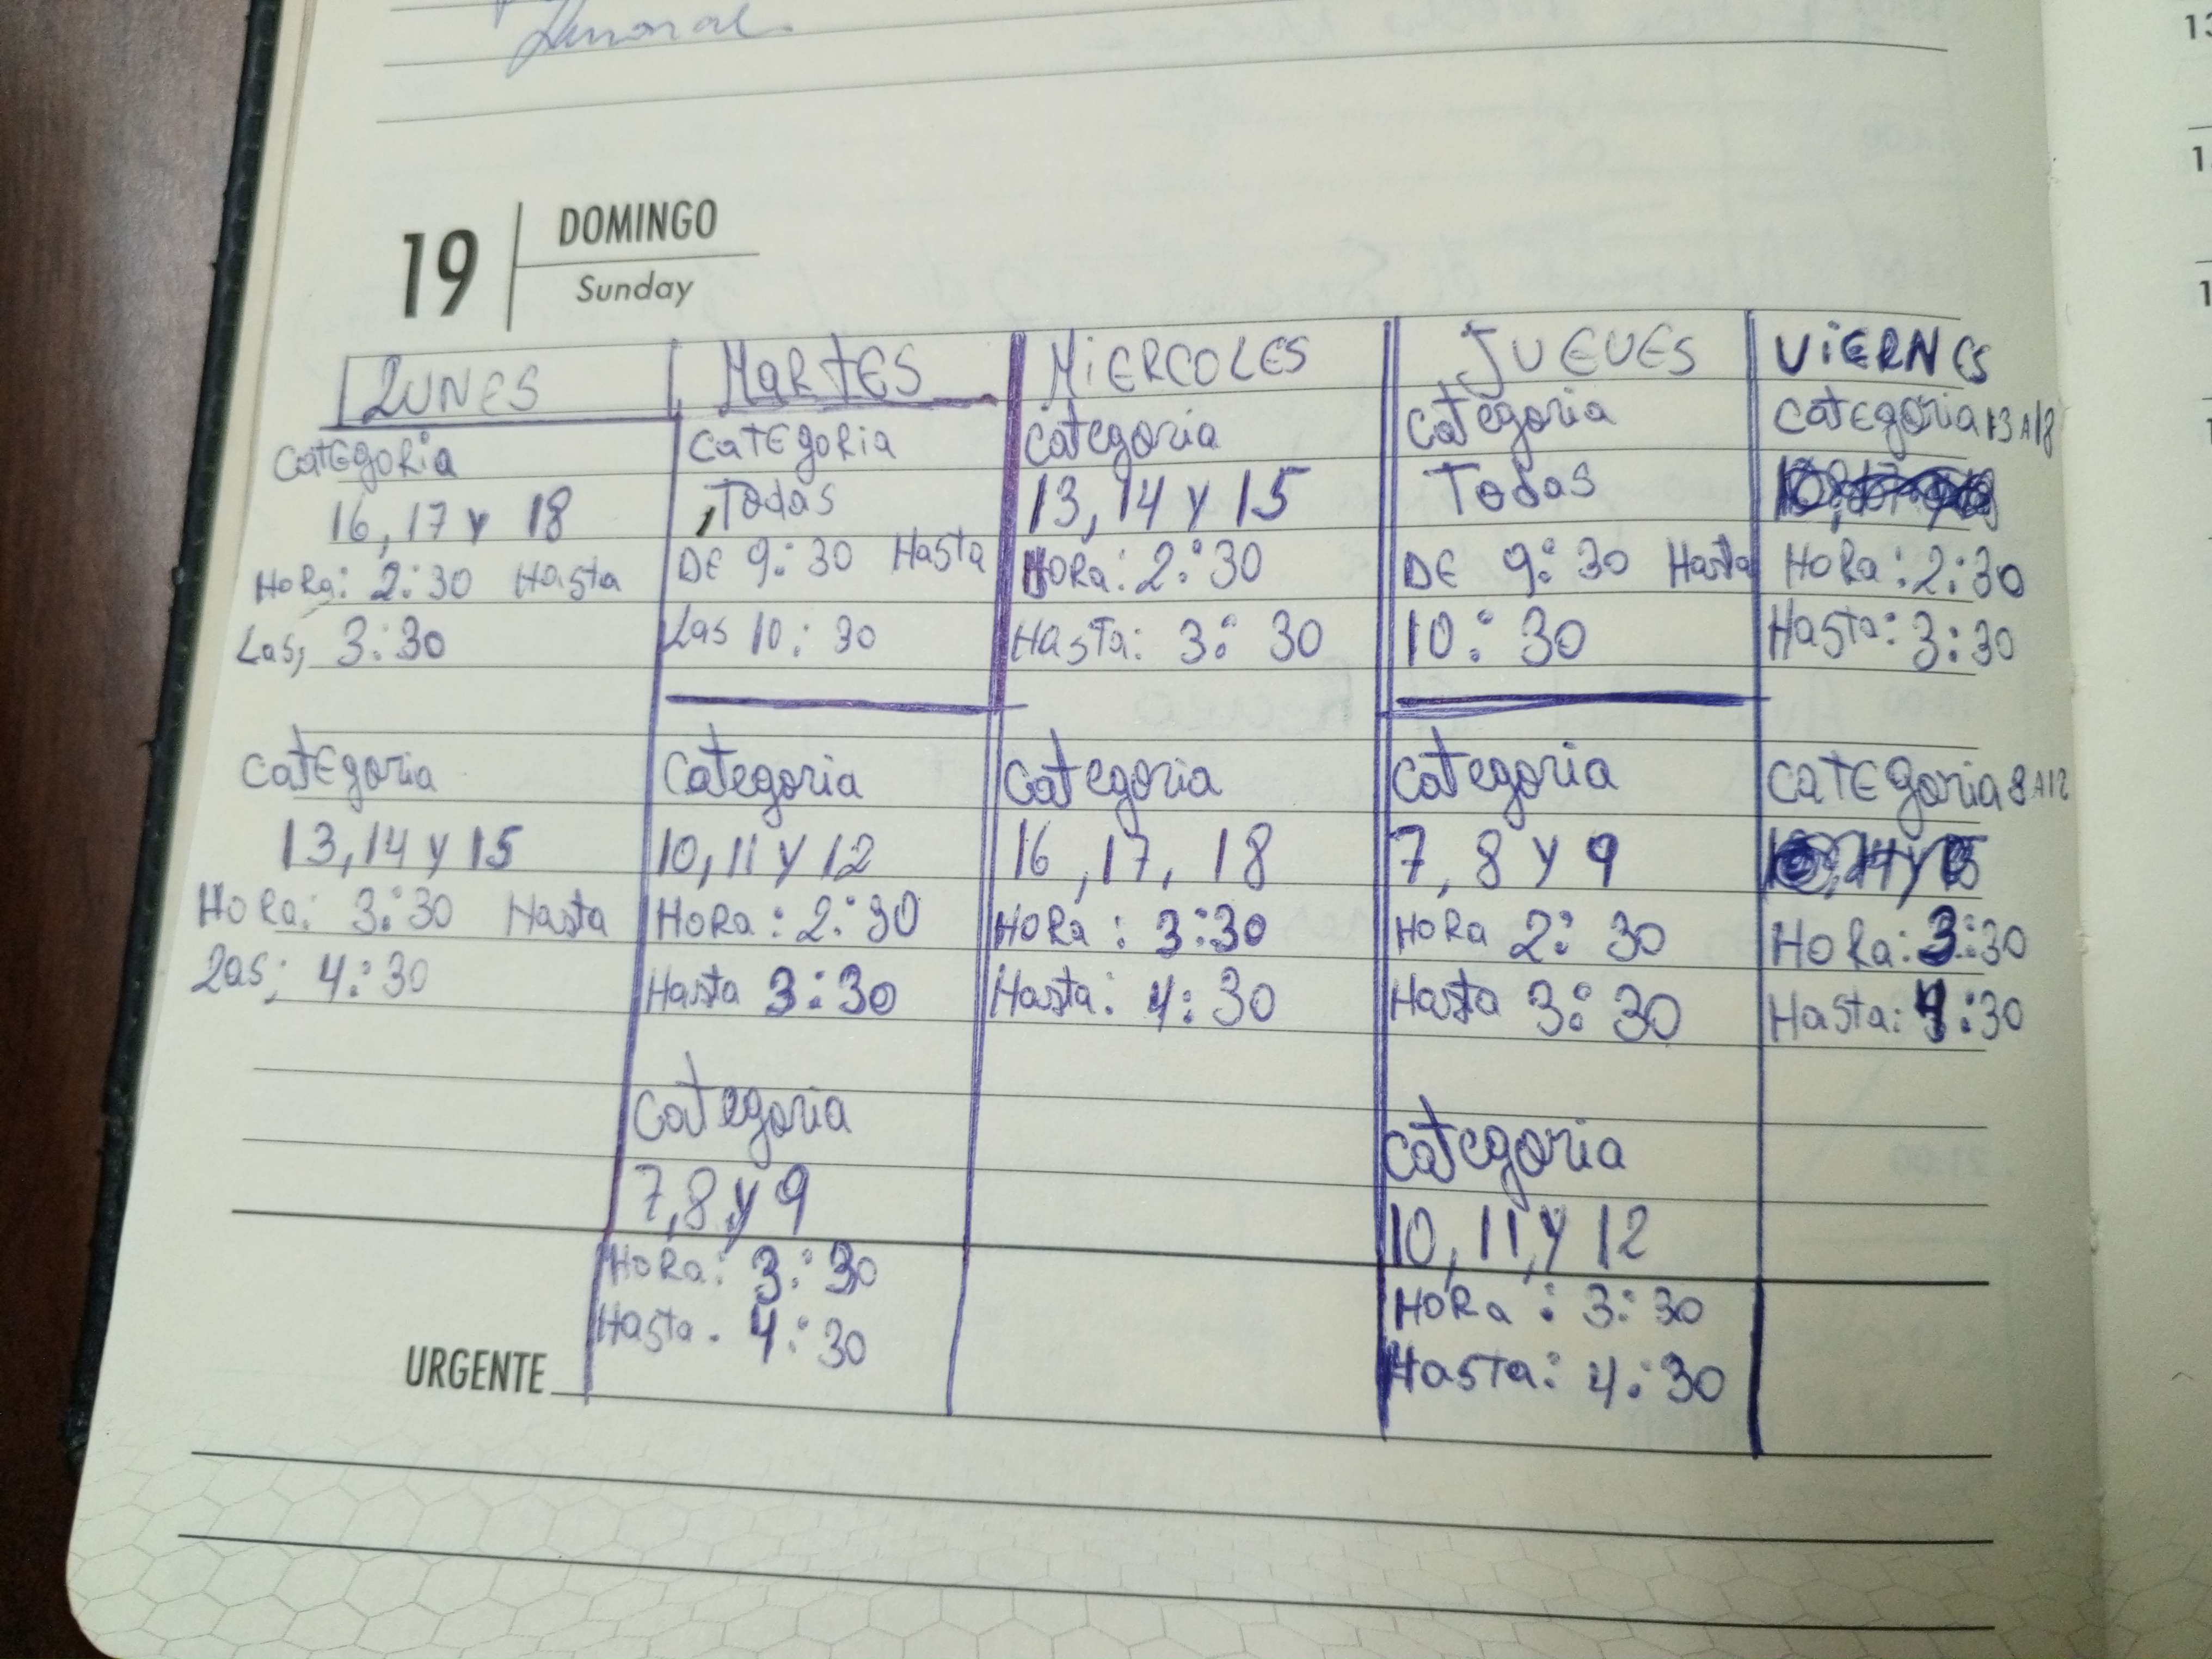 19
DOMINGO
Sunday
LUNES
CATEGORIA
16, 17 y 18
HORA: 2:30 Hasta
Las; 3:30
CATEGORIA
13, 14 y 15
HORA: 3:30 Hasta
Las; 4:30
MARTES
CATEGORIA
Todas
DE 9:30 Hasta
Las 10:30
Categoria
10, 11 y 12
HORA: 2:30
Hasta 3:30
Categoria
7, 8 y 9
HORA: 3:30
Hasta. 4:30
MIERCOLES
Categoria
13, 14 y 15
HORA: 2:30
Hasta: 3:30
Categoria
16, 17, 18
HORA: 3:30
Hasta: 4:30
JUEVES
Categoria
Todas
DE 9:30 Hasta
10:30
Categoria
7, 8 y 9
HORA 2:30
Hasta 3:30
Categoria
10, 11, y 12
HORA: 3:30
Hasta: 4:30
VIERNES
CATEGORIA 13 A 18
HORA: 2:30
Hasta: 3:30
CATEGORIA 8 A 12
HORA: 3:30
Hasta: 4:30
URGENTE